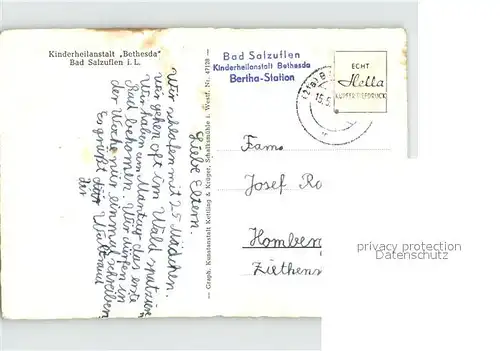 Kinderheilanstalt „Bethesda"
Bad Salzuflen i. L.
Bad Salzuflen
Kinderheilanstalt Bethesda
Bertha-Station
ECHT
Hella
KUPFERTIEFDRUCK
Liebe Eltern.
Wir schlafen mit 25 Mädchen.
Wir gehen oft im Wald spatzieren
Wir haben am Mantag das erste
Bad bekomen. Wir dürfen in
der Woche nur einmal schreiben
Es grüßt
Waltraut
Graph. Kunstanstalt Kettling & Krüger, Schalksmühle i. Westf. Nr. 47128
Fam.
Josef Ro
Homberg
Ziethens
privacy protection
Datenschutz